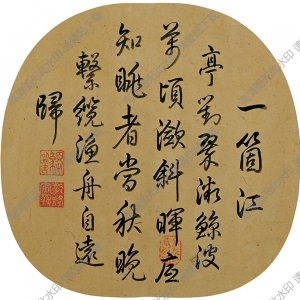 一箇江
亭對翠微鯨波
萬頃瀲斜暉應
知眺者當秋晚
繫纜漁舟自遠
歸